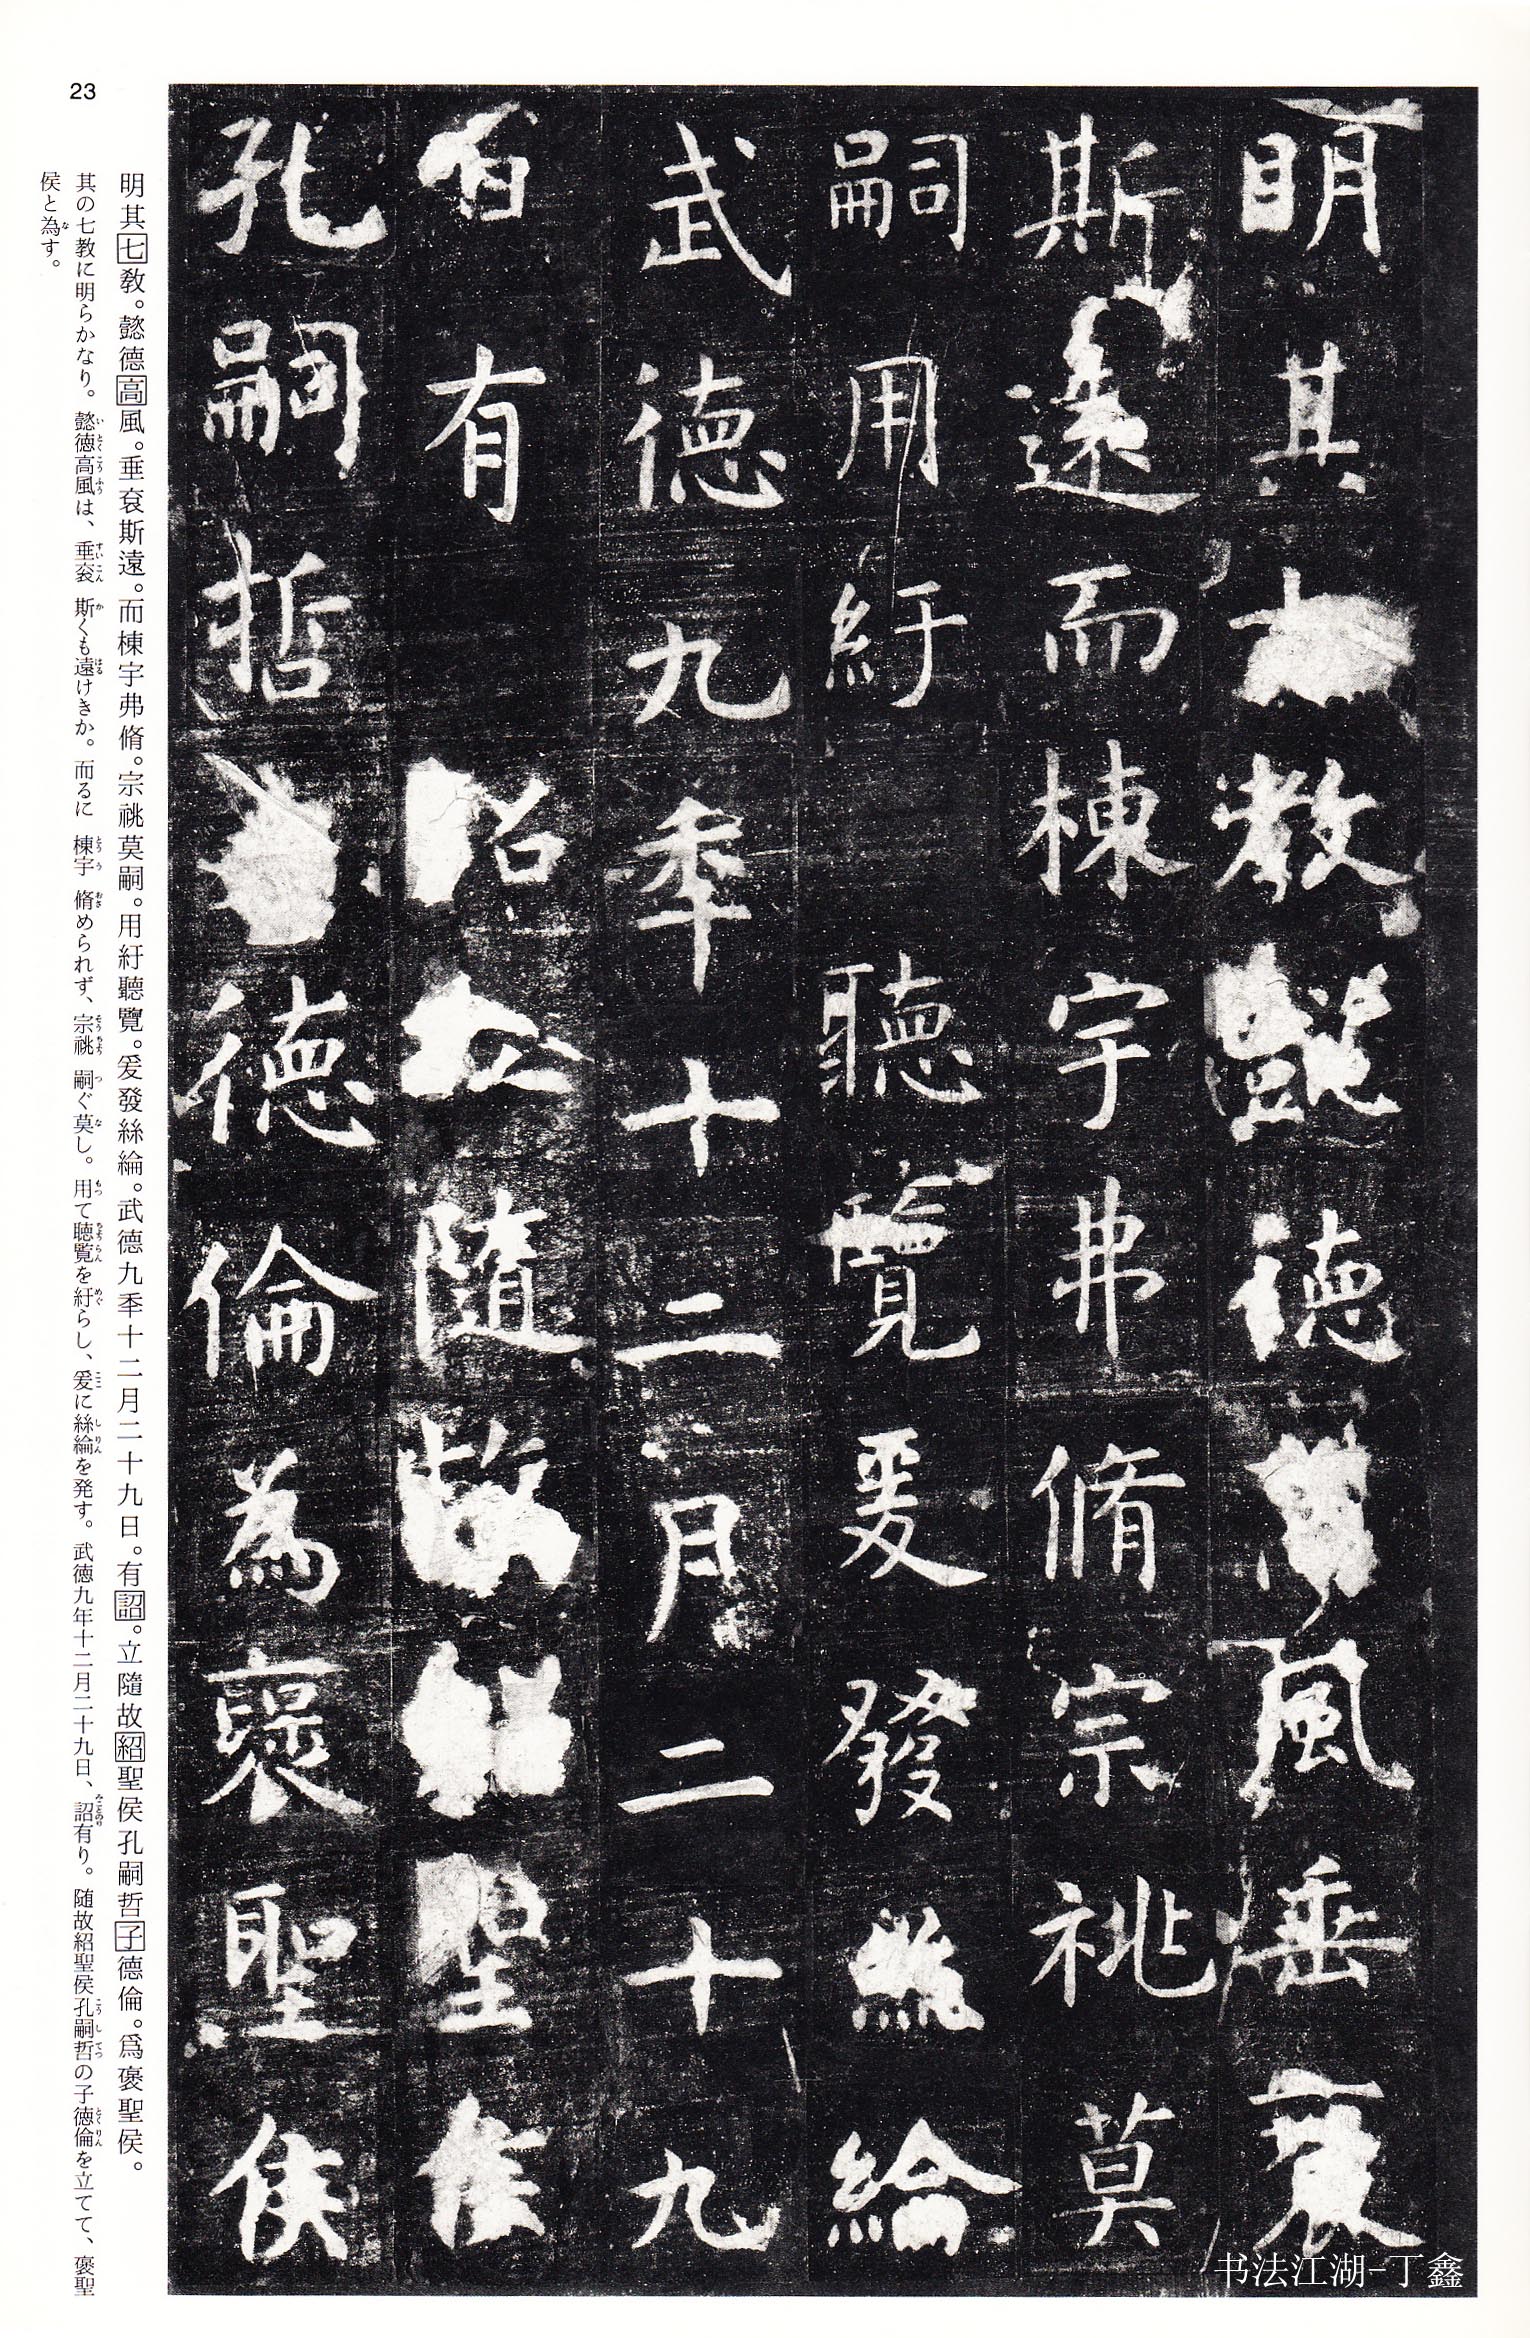 明其教懿德風垂衮
斯遠而棟宇弗脩宗祧莫
嗣用紆聽覽爰發絲綸
武德九秊十二月二十九
日有詔立隨故紹聖侯
孔嗣哲德倫為襃聖侯
明其七敎。懿德高風。垂衮斯遠。而棟宇弗脩。宗祧莫嗣。用紆聽覽。爰發絲綸。武德九秊十二月二十九日。有詔。立隨故紹聖侯孔嗣哲子德倫。爲褒聖侯。
其の七教に明らかなり。懿徳高風は、垂衮 斯くも遠けきか。而るに 棟宇 脩められず、宗祧 嗣ぐ莫し。用て聴覧を紆らし、爰に絲綸を発す。武徳九年十二月二十九日、詔有り。随故紹聖侯孔嗣哲の子徳倫を立てて、褒聖
侯と為す。
23
书法江湖-丁鑫